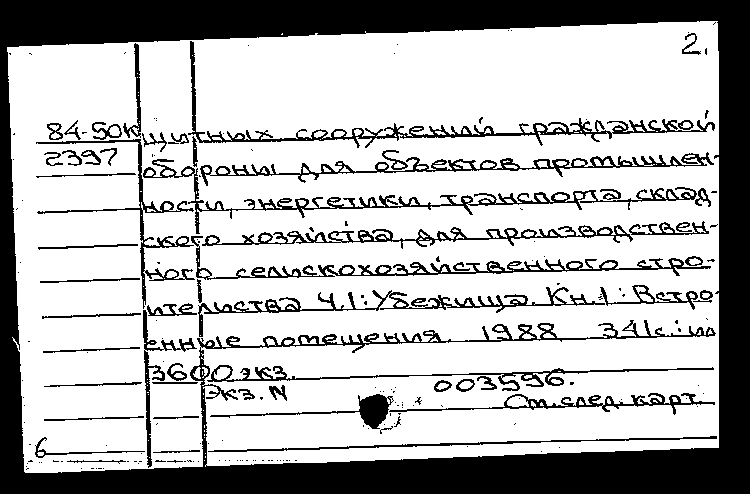 2.
84-50к щитных сооружений гражданской
2397 обороны для объектов промышлен-
ности, энергетики, транспорта, склад-
ского хозяйства, для производствен-
ного сельскохозяйственного стро-
ительства Ч.1: Убежища. Кн.1: Встро-
енные помещения. 1988 341с.: ил
3600 экз.
Экз. N 003596.
См. след. карт.
6